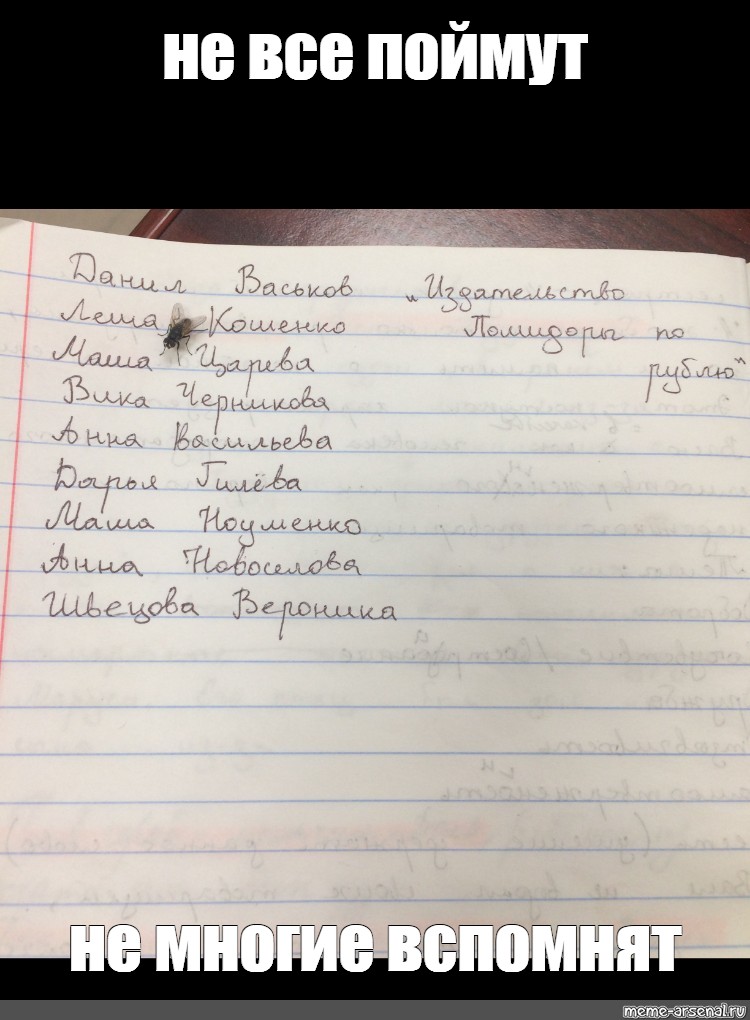 не все поймут
Данил Васьков „Издательство
Леша Кошенко Помидоры по
Маша Царева рублю“
Вика Черникова
Анна Васильева
Дарья Гилёва
Маша Ноуменко
Анна Новоселова
Швецова Вероника
не многие вспомнят
meme-arsenal.ru